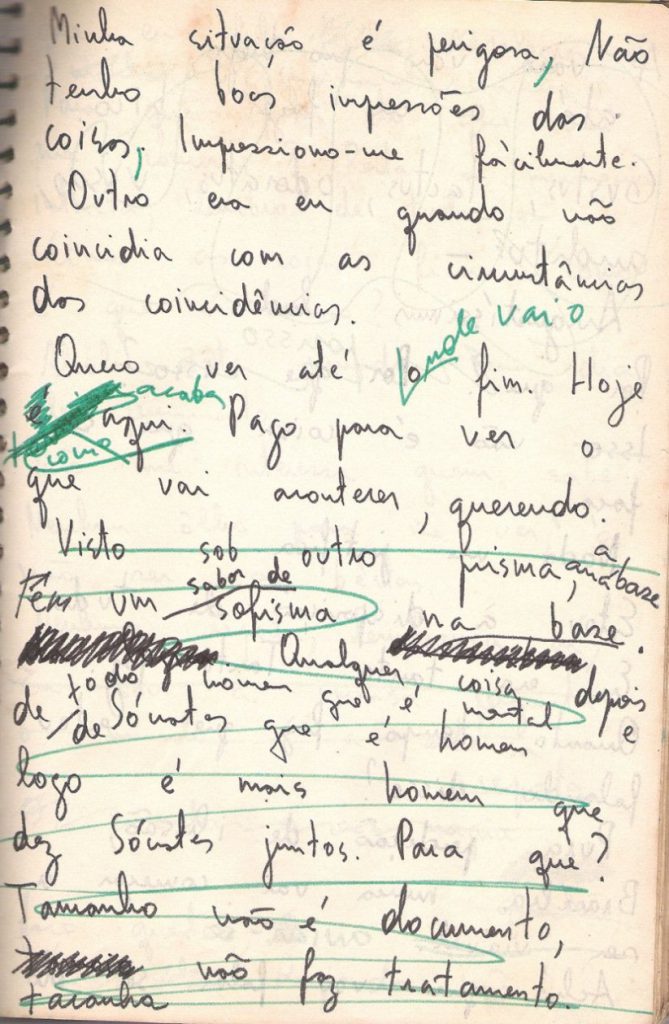 Minha situação é perigosa, Não
tenho boas impressões das
coisas, Impressiono-me fàcilmente.
Outro era eu quando não
coincidia com as circunstâncias
das coincidências.
onde vai o
Quero ver até o fim. Hoje
acaba
é aqui Pago para ver o
como
que vai acontecer, querendo.
Visto sob outro prisma, a anábase
sabor de
têm um sofisma na base.
Qualquer coisa depois
todo homem que é mortal
de de Sócrates que é homem e
logo é mais homem que
dez Sócrates juntos. Para que?
Tamanho não é documento,
tacanha não faz tratamento.